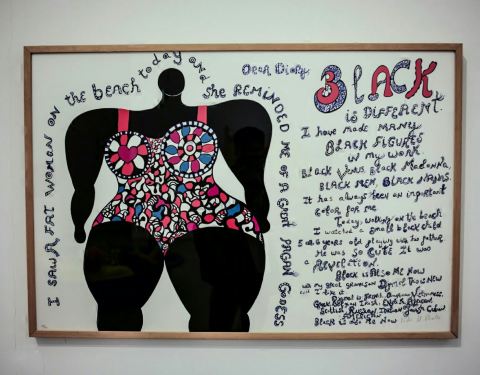 I SAW A FAT WOMAN ON the beach today and she REMINDED ME OF A GREAT PAGAN GODESS
Dear Diary,
BLACK
is DIFFERENT.
I have made MANY
BLACK FIGURES
in my WORK.
Black Venus, Black Madonna,
BLACK MEN, BLACK NANAS.
It has always been an important
color for me.
Today, walking on the beach
I watched a small black child
5 or 6 years old playing with his father.
He was SO CUTE It was
a REVELATION.
Black is Also Me Now
Black is also Me Now